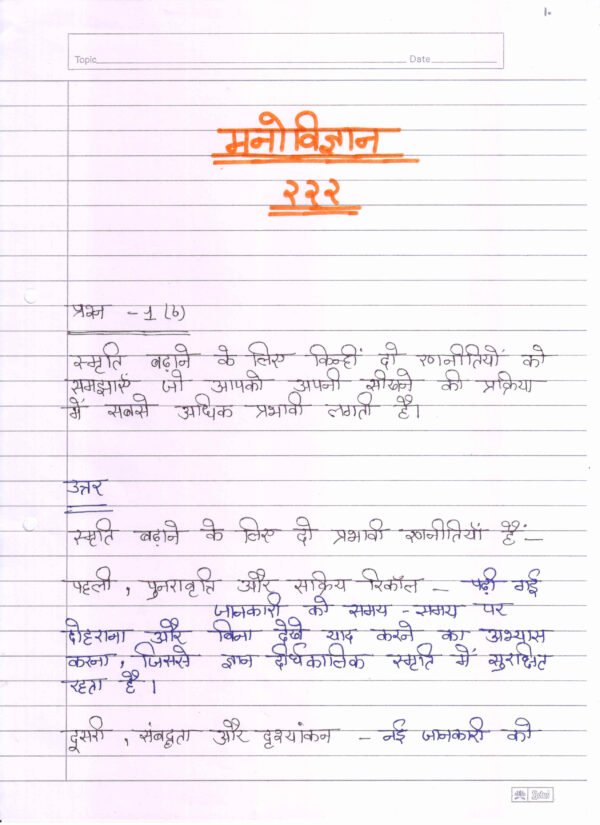 1.
Topic Date
मनोविज्ञान
२२२
प्रश्न - 1 (b)
स्मृति बढ़ाने के लिए किन्हीं दो रणनीतियों को
समझाएँ जो आपको अपनी सीखने की प्रक्रिया
में सबसे अधिक प्रभावी लगती है।
उत्तर
स्मृति बढ़ाने के लिए दो प्रभावी रणनीतियाँ हैं–
पहली , पुनरावृत्ति और सक्रिय रिकॉल – पढ़ी गई
जानकारी को समय - समय पर
दोहराना और बिना देखे याद करने का अभ्यास
करना , जिससे ज्ञान दीर्घकालिक स्मृति में सुरक्षित
रहता है ।
दूसरी , संबद्धता और दृश्यांकन – नई जानकारी को